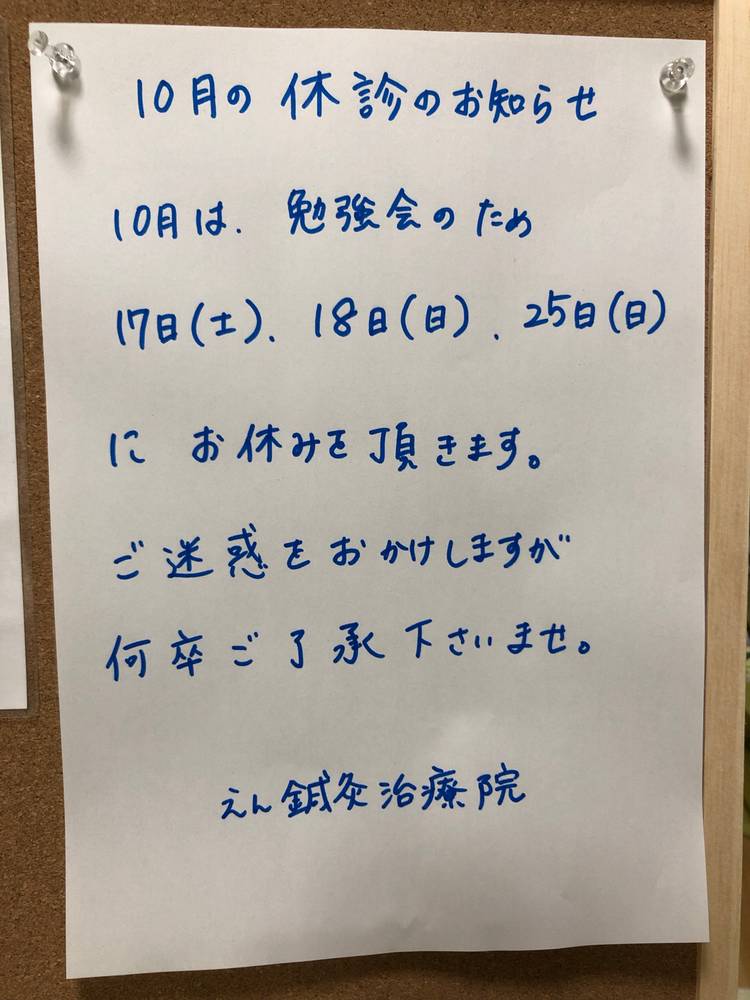 10月の休診のお知らせ
10月は、勉強会のため
17日(土)、18日(日)、25日(日)
にお休みを頂きます。
ご迷惑をおかけしますが
何卒ご了承下さいませ。
えん鍼灸治療院